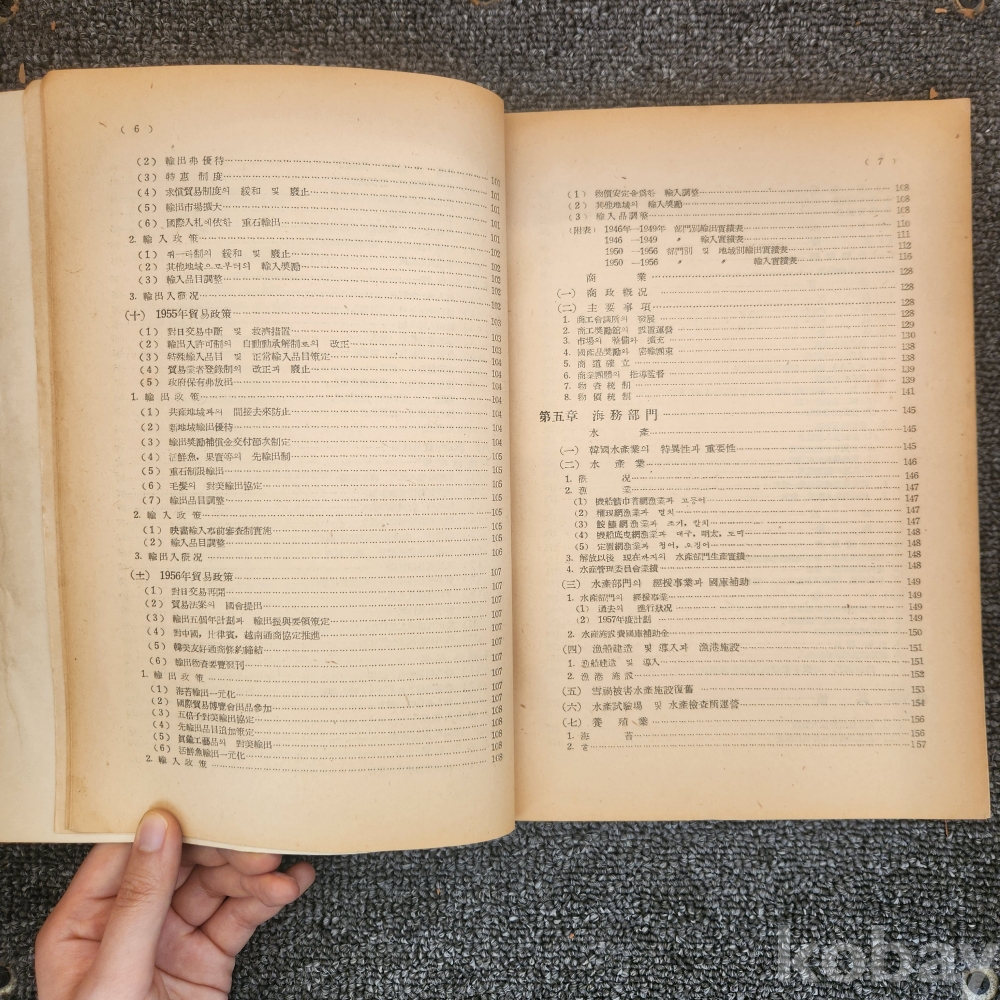 ( 6 )
(2) 輸出弗優待 100
(3) 特惠 制度 101
(4) 求償貿易制度의 緩和 및 廢止 101
(5) 輸出市場擴大 101
(6) 國際入札에依한 重石輸出 101
2. 輸入政策 102
(1) 쿼―타制의 緩和 및 廢止 102
(2) 其他地域으로부터의 輸入奬勵 102
(3) 輸入品目調整 102
3. 輸出入槪况 103
(十) 1955年貿易政策 103
(1) 對日交易中斷 및 救濟措置 103
(2) 輸出入許可制의 自動動承解制로의 改正 104
(3) 特殊輸入品目 및 正常輸入品目策定 104
(4) 貿易業者登錄制의 改正과 廢止 104
(5) 政府保有弗放出 104
1. 輸出政策 104
(1) 共産地域과의 間接去來防止 104
(2) 新地域輸出優待 104
(3) 輸出奬勵補償金交付節次制定 104
(4) 活鮮魚, 果實等의 先輸出制 105
(5) 重石制限輸出 105
(6) 毛髮의 對美輸出協定 105
(7) 輸出品目調整 105
2. 輸入政策 105
(1) 映畵輸入事前審査制實施 105
(2) 輸入品目調整 106
3. 輸出入槪况 106
(土) 1956年貿易政策 107
(1) 對日交易再開 107
(2) 貿易法案의 國會提出 107
(3) 輸出五個年計劃과 輸出振興要領策定 107
(4) 對中國, 比律賓, 越南通商協定推進 107
(5) 韓美友好通商條約締結 107
(6) 輸出物資要覽發刊 107
1. 輸出政策 107
(1) 海苔輸出一元化 107
(2) 國際貿易博覽會出品參加 107
(3) 五倍子對美輸出協定 108
(4) 先輸出品目追加策定 108
(5) 眞鍮工藝品의 對美輸出 108
(6) 活鮮魚輸出一元化 108
2. 輸入政策 108
( 7 )
(1) 物價安定을爲한 輸入調整 108
(2) 其他地域의 輸入奬勵 108
(3) 輸入品調整 108
(附表) 1946年―1949年 部門別輸出實績表 110
1946 ―1949 〃 輸入實績表 111
1950 ―1956 部門別 및 地域別輸出實績表 112
1950 ―1956 〃 〃 輸入實績表 116
商業 128
(一) 商政槪况 128
(二) 主要事項 128
1. 商工會議所의 發展 128
2. 商工奬勵館의 設置運營 129
3. 市場의 整備과 擴充 130
4. 國産品奬勵의 138
5. 商道確立 138
6. 商業團體의 指導監督 139
7. 物資統制 139
8. 物價統制 141
第五章 海務部門 145
水産 145
(一) 韓國水産業의 特異性과 重要性 145
(二) 水産業 146
1. 槪况 146
2. 漁業 147
(1) 機船鰮巾着網漁業과 고등어 147
(2) 權現網漁業과 멸치 147
(3) 鮟鱇網漁業과 조기, 갈치 147
(4) 機船底曳網漁業과 대구, 明太, 도미 148
(5) 定置網漁業과 청어, 오징어 148
3. 解放以後 現在까지의 水産部門生産實績 148
4. 水産管理委員會業績 148
(三) 水産部門의 經援事業과 國庫補助 149
1. 水産部門의 經援事業 149
(1) 過去의 進行狀况 149
(2) 1957年度計劃 149
2. 水産施設費國庫補助金 150
(四) 漁船建造 및 導入과 漁港施設 151
1. 漁船建造 및 導入 151
2. 漁港施設 152
(五) 雪禍被害水産施設復舊 153
(六) 水産試驗場 및 水産檢査所運營 154
(七) 養殖業 156
1. 海苔 156
2. 157
kobay